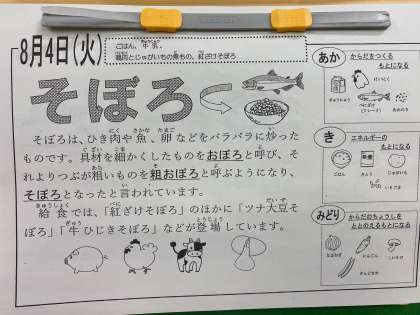 8月4日(火)
ごはん、牛乳、
鶏肉とじゃがいもの煮もの、紅ざけそぼろ
そぼろ
そぼろは、ひき肉や魚、卵などをバラバラに炒った
ものです。具材を細かくしたものをおぼろと呼び、そ
れよりつぶが粗いものを粗おぼろと呼ぶようになり、
そぼろとなったと言われています。
給食では、「紅ざけそぼろ」のほかに「ツナ大豆そ
ぼろ」「牛ひじきそぼろ」などが登場しています。
あか
からだをつくる
もとになる
ぎゅうにゅう
けいにく
べにざけ
(フレーク)
き
エネルギーの
もとになる
ごはん
じゃがいも
みどり
からだのちょうしを
ととのえるもとになる
にんじん